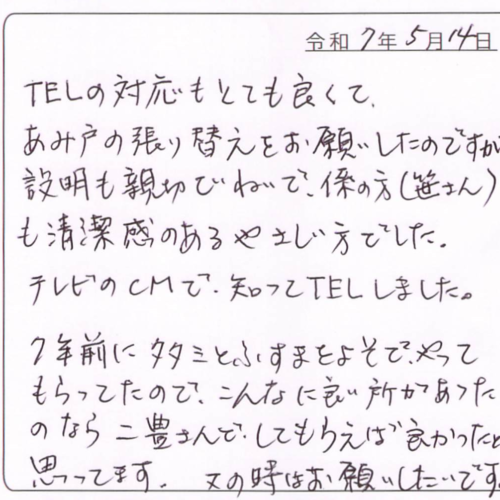 令和 7年 5月 14日
TELの対応もとても良くて、
あみ戸の張り替えをお願いしたのですが
説明も親切でねいで、係の方(笹さん)
も清潔感のあるやさしい方でした。
テレビのCMで、知ってTELしました。
7年前にタタミとふすまをよそで、やって
もらってたので、こんなに良い所があった
のなら二豊さんで、してもらえば良かったと
思ってます。 又の時はお願いしたいです。